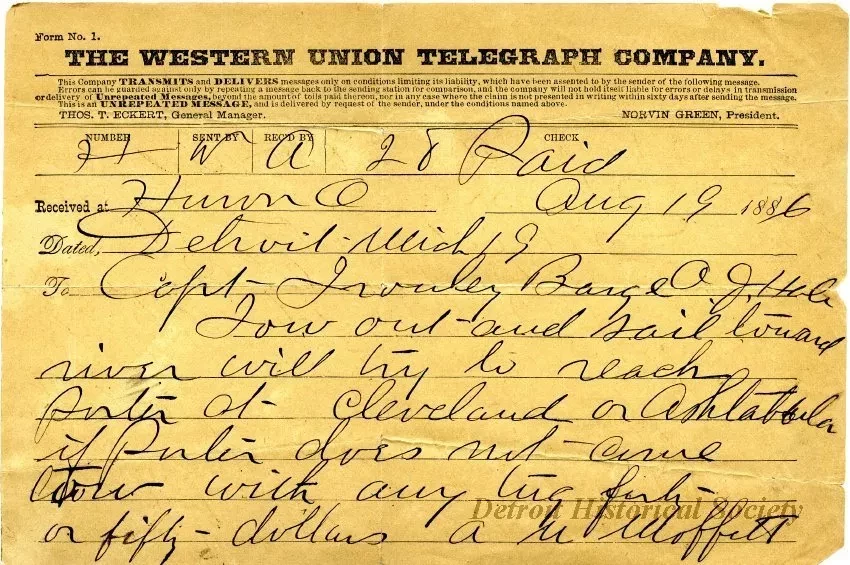 Form No. 1.
THE WESTERN UNION TELEGRAPH COMPANY.
This Company TRANSMITS and DELIVERS messages only on conditions limiting its liability, which have been assented to by the sender of the following message.
Errors can be guarded against only by repeating a message back to the sending station for comparison, and the company will not hold itself liable for errors or delays in transmission
or delivery of Unrepeated Messages, beyond the amount of tolls paid thereon, nor in any case where the claim is not presented in writing within sixty days after sending the message.
This is an UNREPEATED MESSAGE, and is delivered by request of the sender, under the conditions named above.
THOS. T. ECKERT, General Manager. NORVIN GREEN, President.
NUMBER SENT BY REC'D BY CHECK
W A 28 Paid
Received at Huron O Aug 19 1886
Dated, Detroit Mich 19
To Capt Barge O. J. Hale
Tow out and sail toward
river will try to reach
Porter at Cleveland or Ashtabula
if Porter does not come
tow with any tug forty
or fifty dollars A M Moffett
Detroit Historical Society